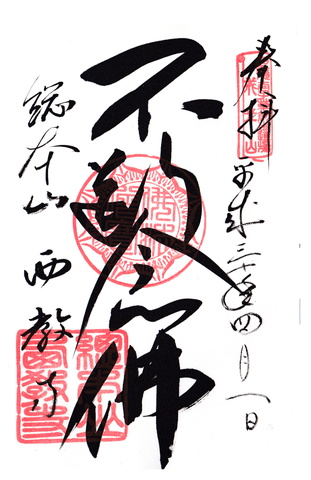 奉拝
平成三十年四月一日
不断念佛
総本山西教寺